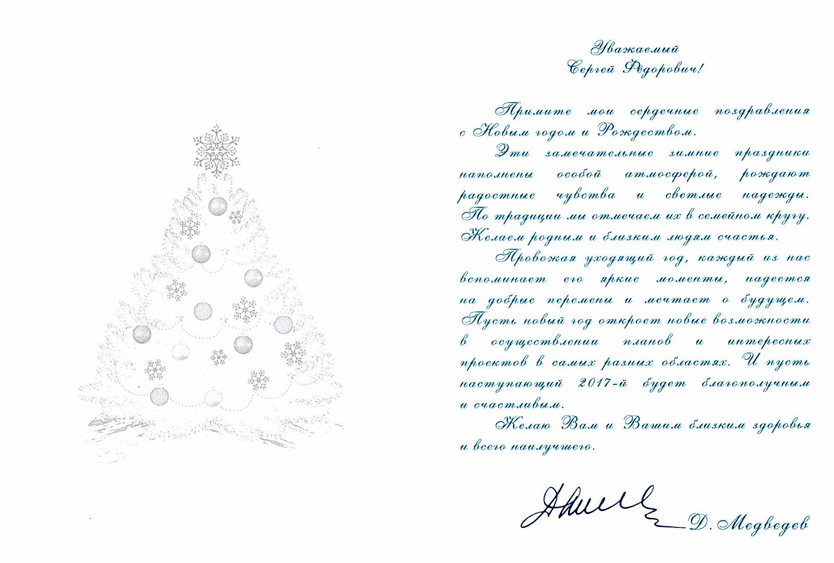 Уважаемый
Сергей Фёдорович!
Примите мои сердечные поздравления
с Новым годом и Рождеством.
Эти замечательные зимние праздники
наполнены особой атмосферой, рождают
радостные чувства и светлые надежды.
По традиции мы отмечаем их в семейном кругу.
Желаем родным и близким людям счастья.
Провожая уходящий год, каждый из нас
вспоминает его яркие моменты, надеется
на добрые перемены и мечтает о будущем.
Пусть новый год откроет новые возможности
в осуществлении планов и интересных
проектов в самых разных областях. И пусть
наступающий 2017-й будет благополучным
и счастливым.
Желаю Вам и Вашим близким здоровья
и всего наилучшего.
Д. Медведев